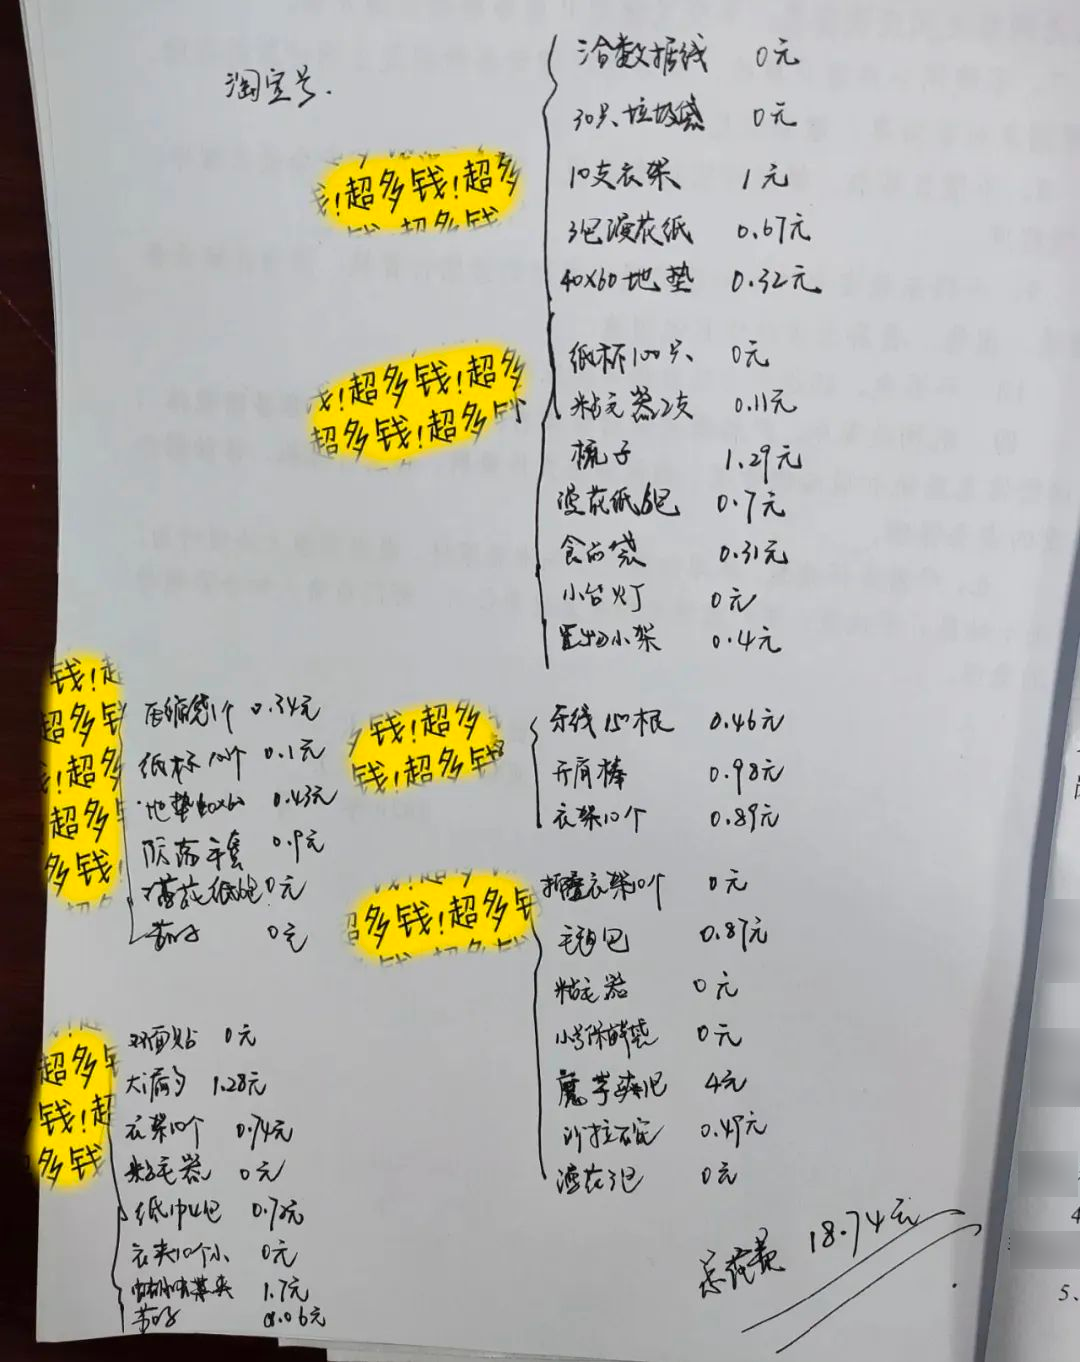 淘宝号.
数据线 0元
30只垃圾袋 0元
10支衣架 1元
3包浸花纸 0.67元
40x60地垫 0.32元
纸杯100只 0元
粘毛器2支 0.11元
梳子 1.29元
浸花纸6包 0.7元
食品袋 0.31元
小台灯 0元
置物小架 0.4元
超多钱!超多
超多钱
钱!超多钱!超多
超多钱!超多钱
牙线150根 0.46元
开肩棒 0.98元
衣架10个 0.89元
折叠衣架10个 0元
毛包 0.87元
粘毛器 0元
小号保鲜袋 0元
魔芋爽1包 4元
沙拉碗 0.49元
浸花3包 0元
钱!超多
钱!超多钱
超多钱!超多钱
压缩袋1个 0.34元
纸杯 0.1元
地垫40x60 0.43元
手套 0.9元
0元
0元
钱!超
超多钱
!超多
超多
多钱!
双面贴 0元
1.28元
衣架10个 0.74元
粘毛器 0元
纸巾4包 0.72元
衣夹10个小 0元
1.7元
0.06元
超多钱
钱!超
多钱
总花费 18.74元
4
5、